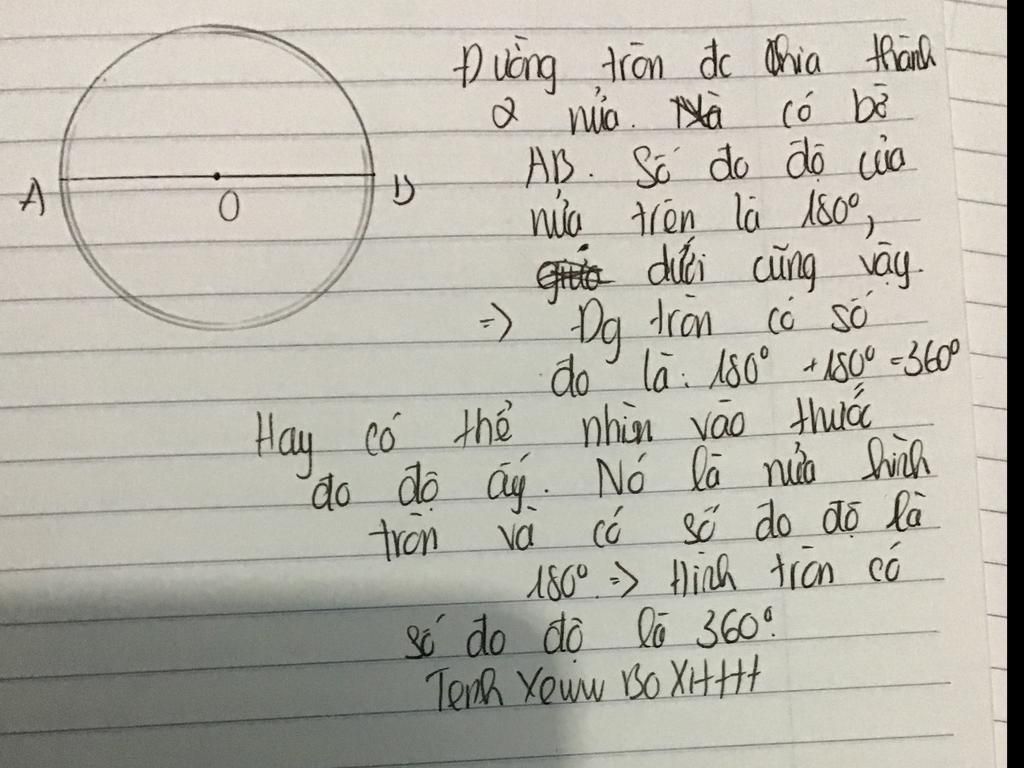 Đường tròn đc chia thành
2 nửa. có bờ
AB. Số đo độ của
nửa trên là 180°,
dưới cũng vậy.
=> Đg tròn có số
đo là: 180° +180° =360°
Hay có thể nhìn vào thước
đo độ ấy. Nó là nửa hình
tròn và có số đo độ là
180° => Hình tròn có
số đo độ là 360°.
A
O
B